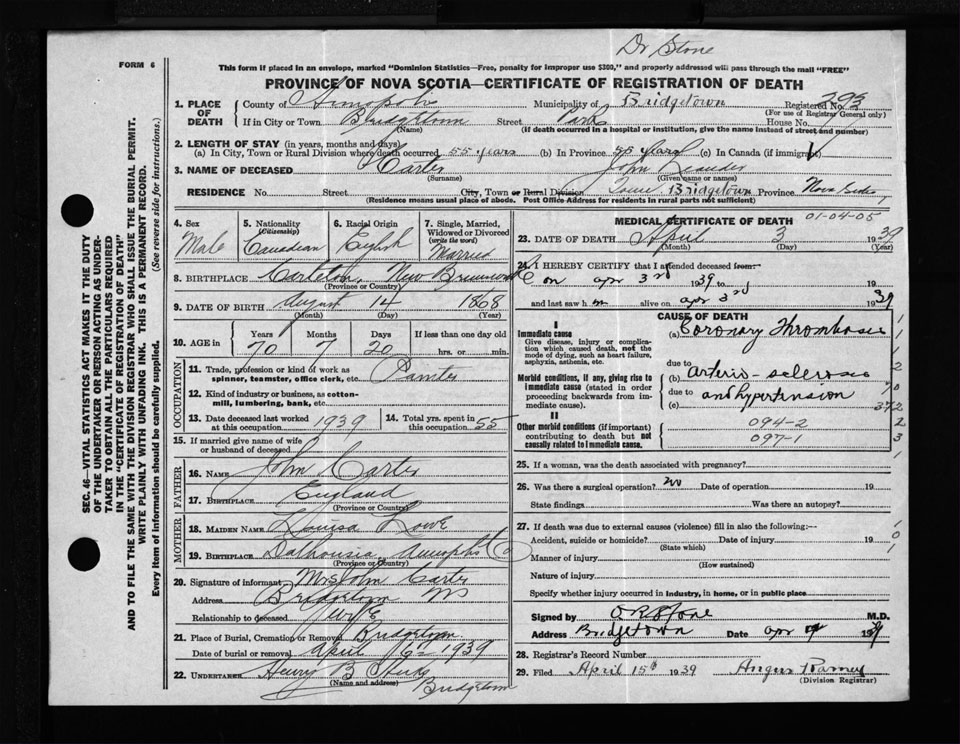 Dr Stone
FORM 6
This form if placed in an envelope, marked "Dominion Statistics—Free, penalty for improper use $300," and properly addressed will pass through the mail "FREE"
PROVINCE OF NOVA SCOTIA—CERTIFICATE OF REGISTRATION OF DEATH
SEC. 46—VITAL STATISTICS ACT MAKES IT THE DUTY
OF THE UNDERTAKER OR PERSON ACTING AS UNDER-
TAKER TO OBTAIN ALL THE PARTICULARS REQUIRED
IN THE "CERTIFICATE OF REGISTRATION OF DEATH"
AND TO FILE THE SAME WITH THE DIVISION REGISTRAR WHO SHALL ISSUE THE BURIAL PERMIT.
WRITE PLAINLY WITH UNFADING INK. THIS IS A PERMANENT RECORD.
Every item of information should be carefully supplied. (See reverse side for instructions.)
1. PLACE OF DEATH
County of Annapolis Municipality of Bridgetown Registered No. 293
(For use of Registrar General only)
If in City or Town Bridgetown Street Park House No.
(Name) (If death occurred in a hospital or institution, give the name instead of street and number)
2. LENGTH OF STAY (in years, months and days)
(a) In City, Town or Rural Division where death occurred 55 years (b) In Province 55 years (c) In Canada (if immigrant)
3. NAME OF DECEASED Carter John
(Surname) (Given name or names)
RESIDENCE No. Street City, Town or Rural Division Town Bridgetown Province Nova Scotia
(Residence means usual place of abode. Post Office Address for residents in rural parts not sufficient)
4. Sex
Male
5. Nationality
(Citizenship)
Canadian
6. Racial Origin
English
7. Single, Married,
Widowed or Divorced
(write the word)
Married
8. BIRTHPLACE Carleton, New Brunswick
(Province or Country)
9. DATE OF BIRTH August 14 1868
(Month) (Day) (Year)
10. AGE in
Years Months Days If less than one day old
70 7 20 hrs. or min.
OCCUPATION
11. Trade, profession or kind of work as
spinner, teamster, office clerk, etc. Painter
12. Kind of industry or business, as cotton-
mill, lumbering, bank, etc.
13. Date deceased last worked
at this occupation 1939
14. Total yrs. spent in
this occupation 55
15. If married give name of wife
or husband of deceased
FATHER
16. NAME John Carter
17. BIRTHPLACE England
(Province or Country)
MOTHER
18. MAIDEN NAME Louisa Lowe
19. BIRTHPLACE Dalhousie, Annapolis Co
(Province or Country)
20. Signature of informant Mrs John Carter
Address Bridgetown NS
Relationship to deceased Wife
21. Place of Burial, Cremation or Removal Bridgetown
Date of burial or removal April 6th 1939
22. UNDERTAKER Henry B Hicks
(Name and address) Bridgetown
MEDICAL CERTIFICATE OF DEATH
01-04-05
23. DATE OF DEATH April 3 1939
(Month) (Day) (Year)
24. I HEREBY CERTIFY that I attended deceased from
on apr 3rd 1939 to 19
and last saw h m alive on apr 3rd 1939
CAUSE OF DEATH
I
Immediate cause
Give disease, injury or complica-
tion which caused death, not the
mode of dying, such as heart failure,
asphyxia, asthenia, etc.
(a) Coronary Thrombosis
Morbid conditions, if any, giving rise to
immediate cause (stated in order
proceeding backwards from im-
mediate cause).
due to
(b) arterio-sclerosis
due to
(c) and hypertension
II
Other morbid conditions (if important)
contributing to death but not
causally related to immediate cause.
094-2
097-1
25. If a woman, was the death associated with pregnancy?
26. Was there a surgical operation? no Date of operation 19
State findings Was there an autopsy?
27. If death was due to external causes (violence) fill in also the following:—
Accident, suicide or homicide? Date of injury 19
(State which)
Manner of injury
(How sustained)
Nature of injury
Specify whether injury occurred in industry, in home, or in public place
Signed by O R Stone M.D.
Address Bridgetown Date apr 19
28. Registrar's Record Number
29. Filed April 15th 1939 Angus Ramey
(Division Registrar)